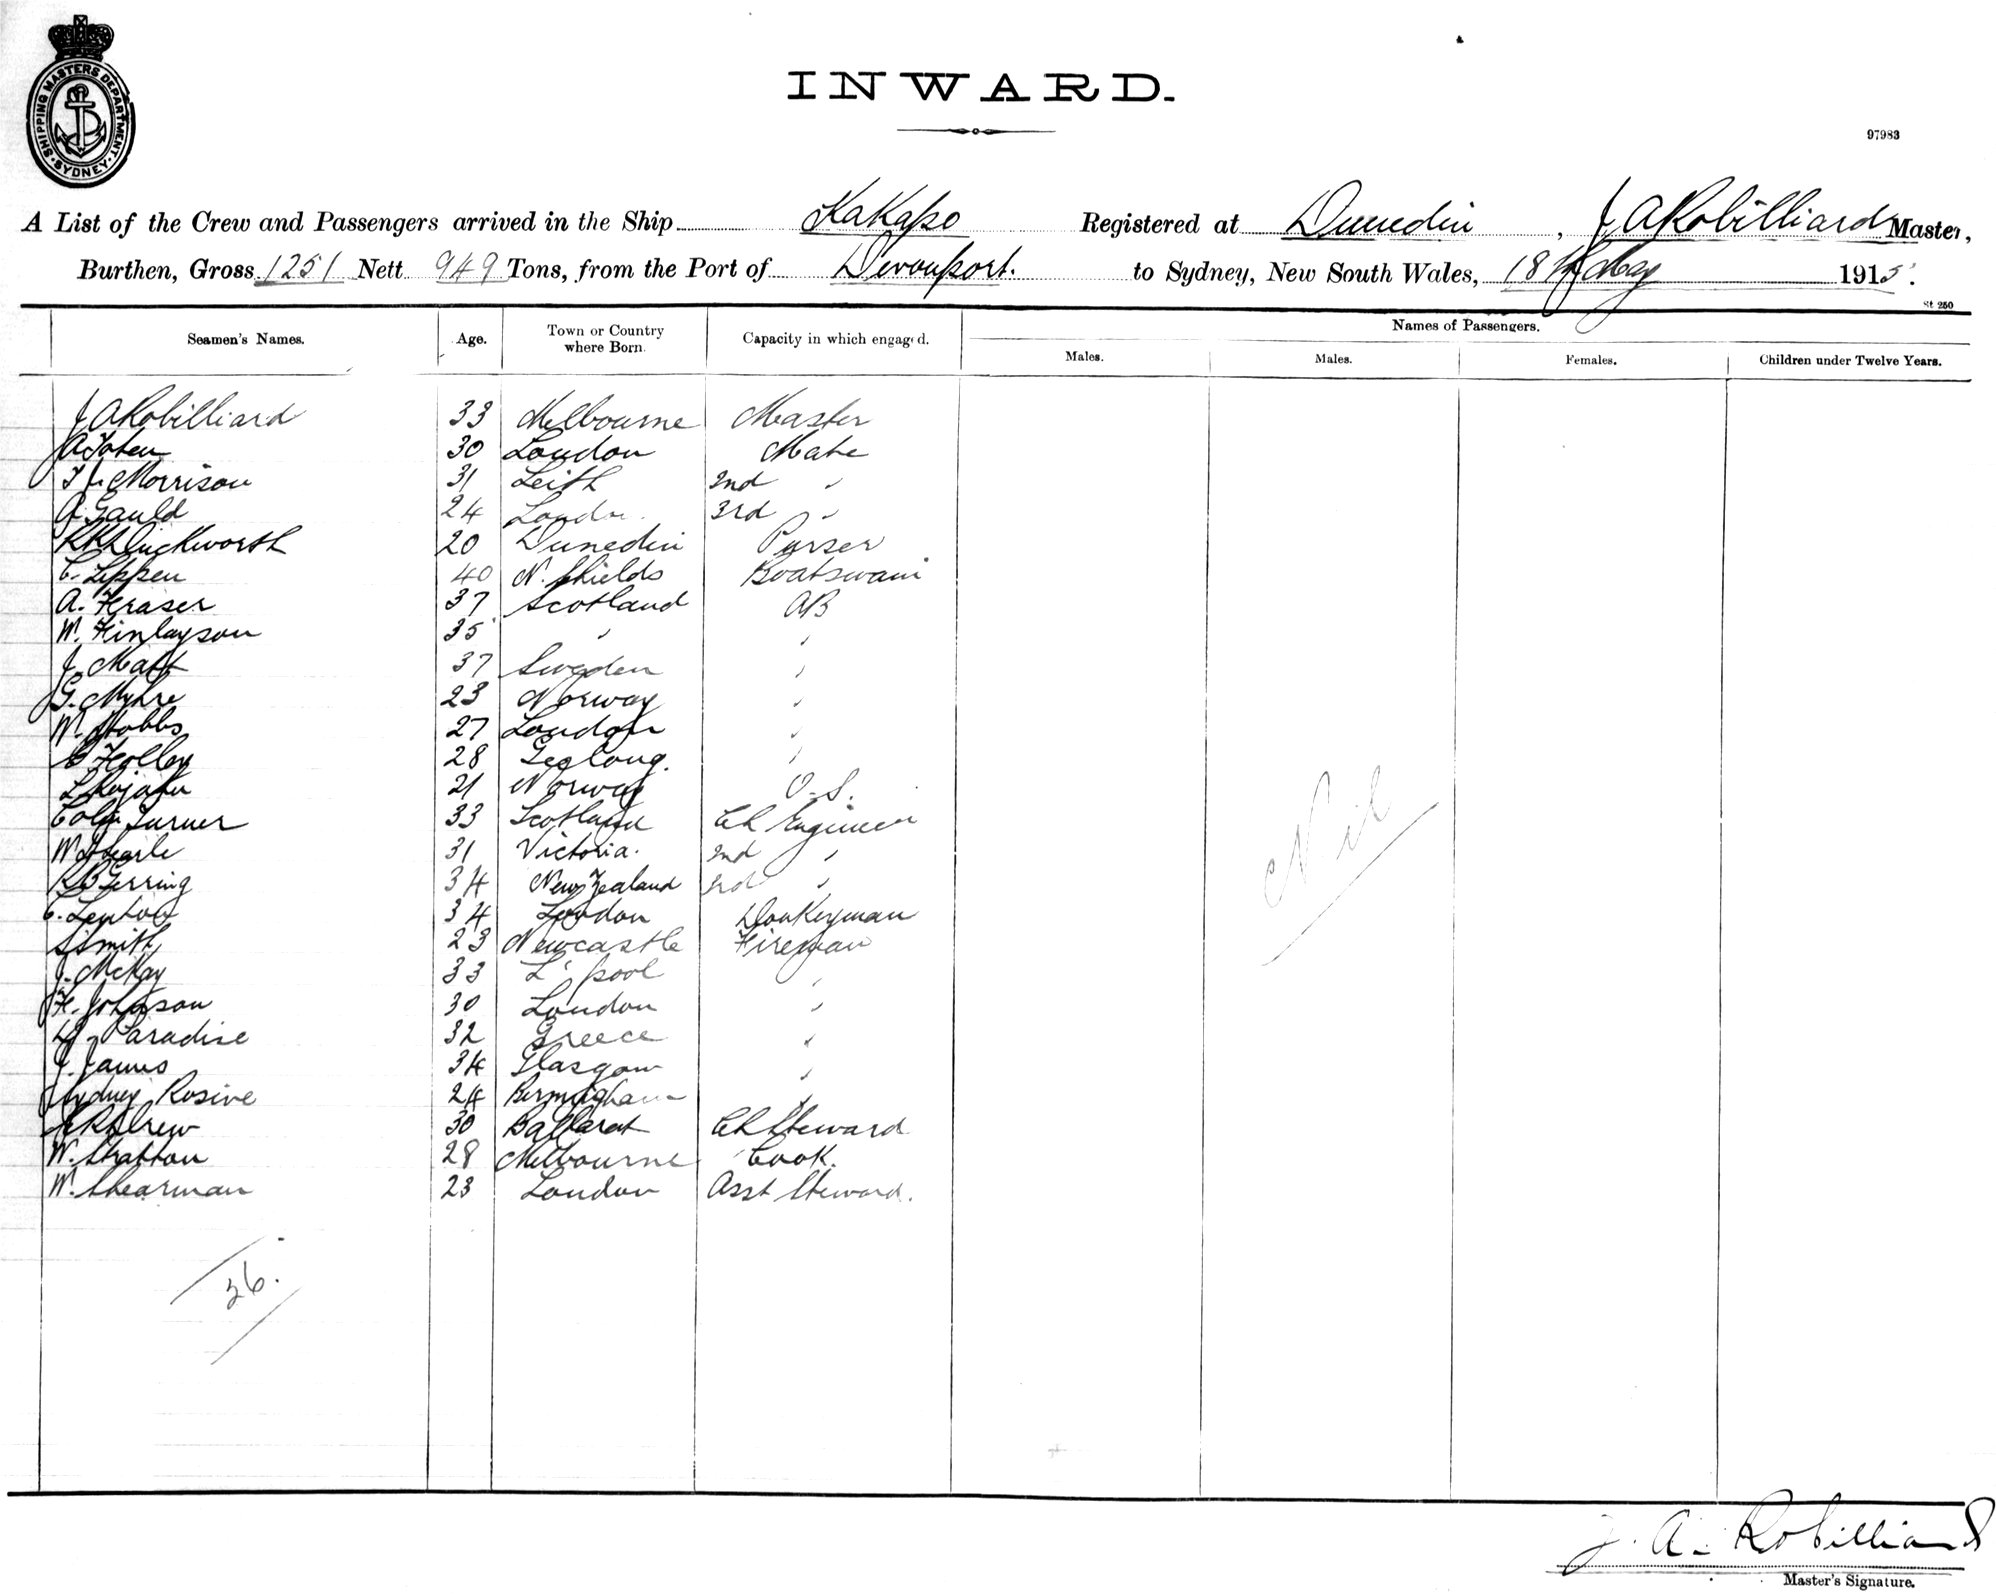 SHIPPING MASTERS DEPARTMENT
SYDNEY
INWARD.
97983
A List of the Crew and Passengers arrived in the Ship Kakapo Registered at Dunedin, J A Robilliard Master,
Burthen, Gross 1251 Nett 949 Tons, from the Port of Devonport. to Sydney, New South Wales, 18th May 1915.
St 250
Seamen's Names. Age. Town or Country where Born. Capacity in which engaged. Names of Passengers.
Males. Males. Females. Children under Twelve Years.
J A Robilliard 33 Melbourne Master
30 London Mate
T J. Morrison 31 Leith 2nd "
A Gauld 24 3rd "
Duckworth 20 Dunedin Purser
C. Lippen 40 N. Shields Boatswain
A. Fraser 37 Scotland AB
W. Finlayson 35 " "
J. Matt 37 Sweden "
G. Myhre 23 Norway "
W. Hobbs 27 London "
Holley 28 Geelong. "
21 Norway O.S.
Colin Turner 33 Scotland Ch Engineer
W Searle 31 Victoria. 2nd "
R B Gerring 34 New Zealand 3rd "
C. 34 London Donkeyman
S Smith 23 Newcastle Fireman
J. McKay 33 L'pool "
F. Johnson 30 London "
Paradise 32 Greece "
J. James 34 Glasgow "
Sydney Rosine 24 Birmingham "
Drew 30 Ballarat Ch Steward
W. Stratton 28 Melbourne Cook.
W. Shearman 23 London Asst Steward.
Nil
26.
J. A. Robilliard
Master's Signature.